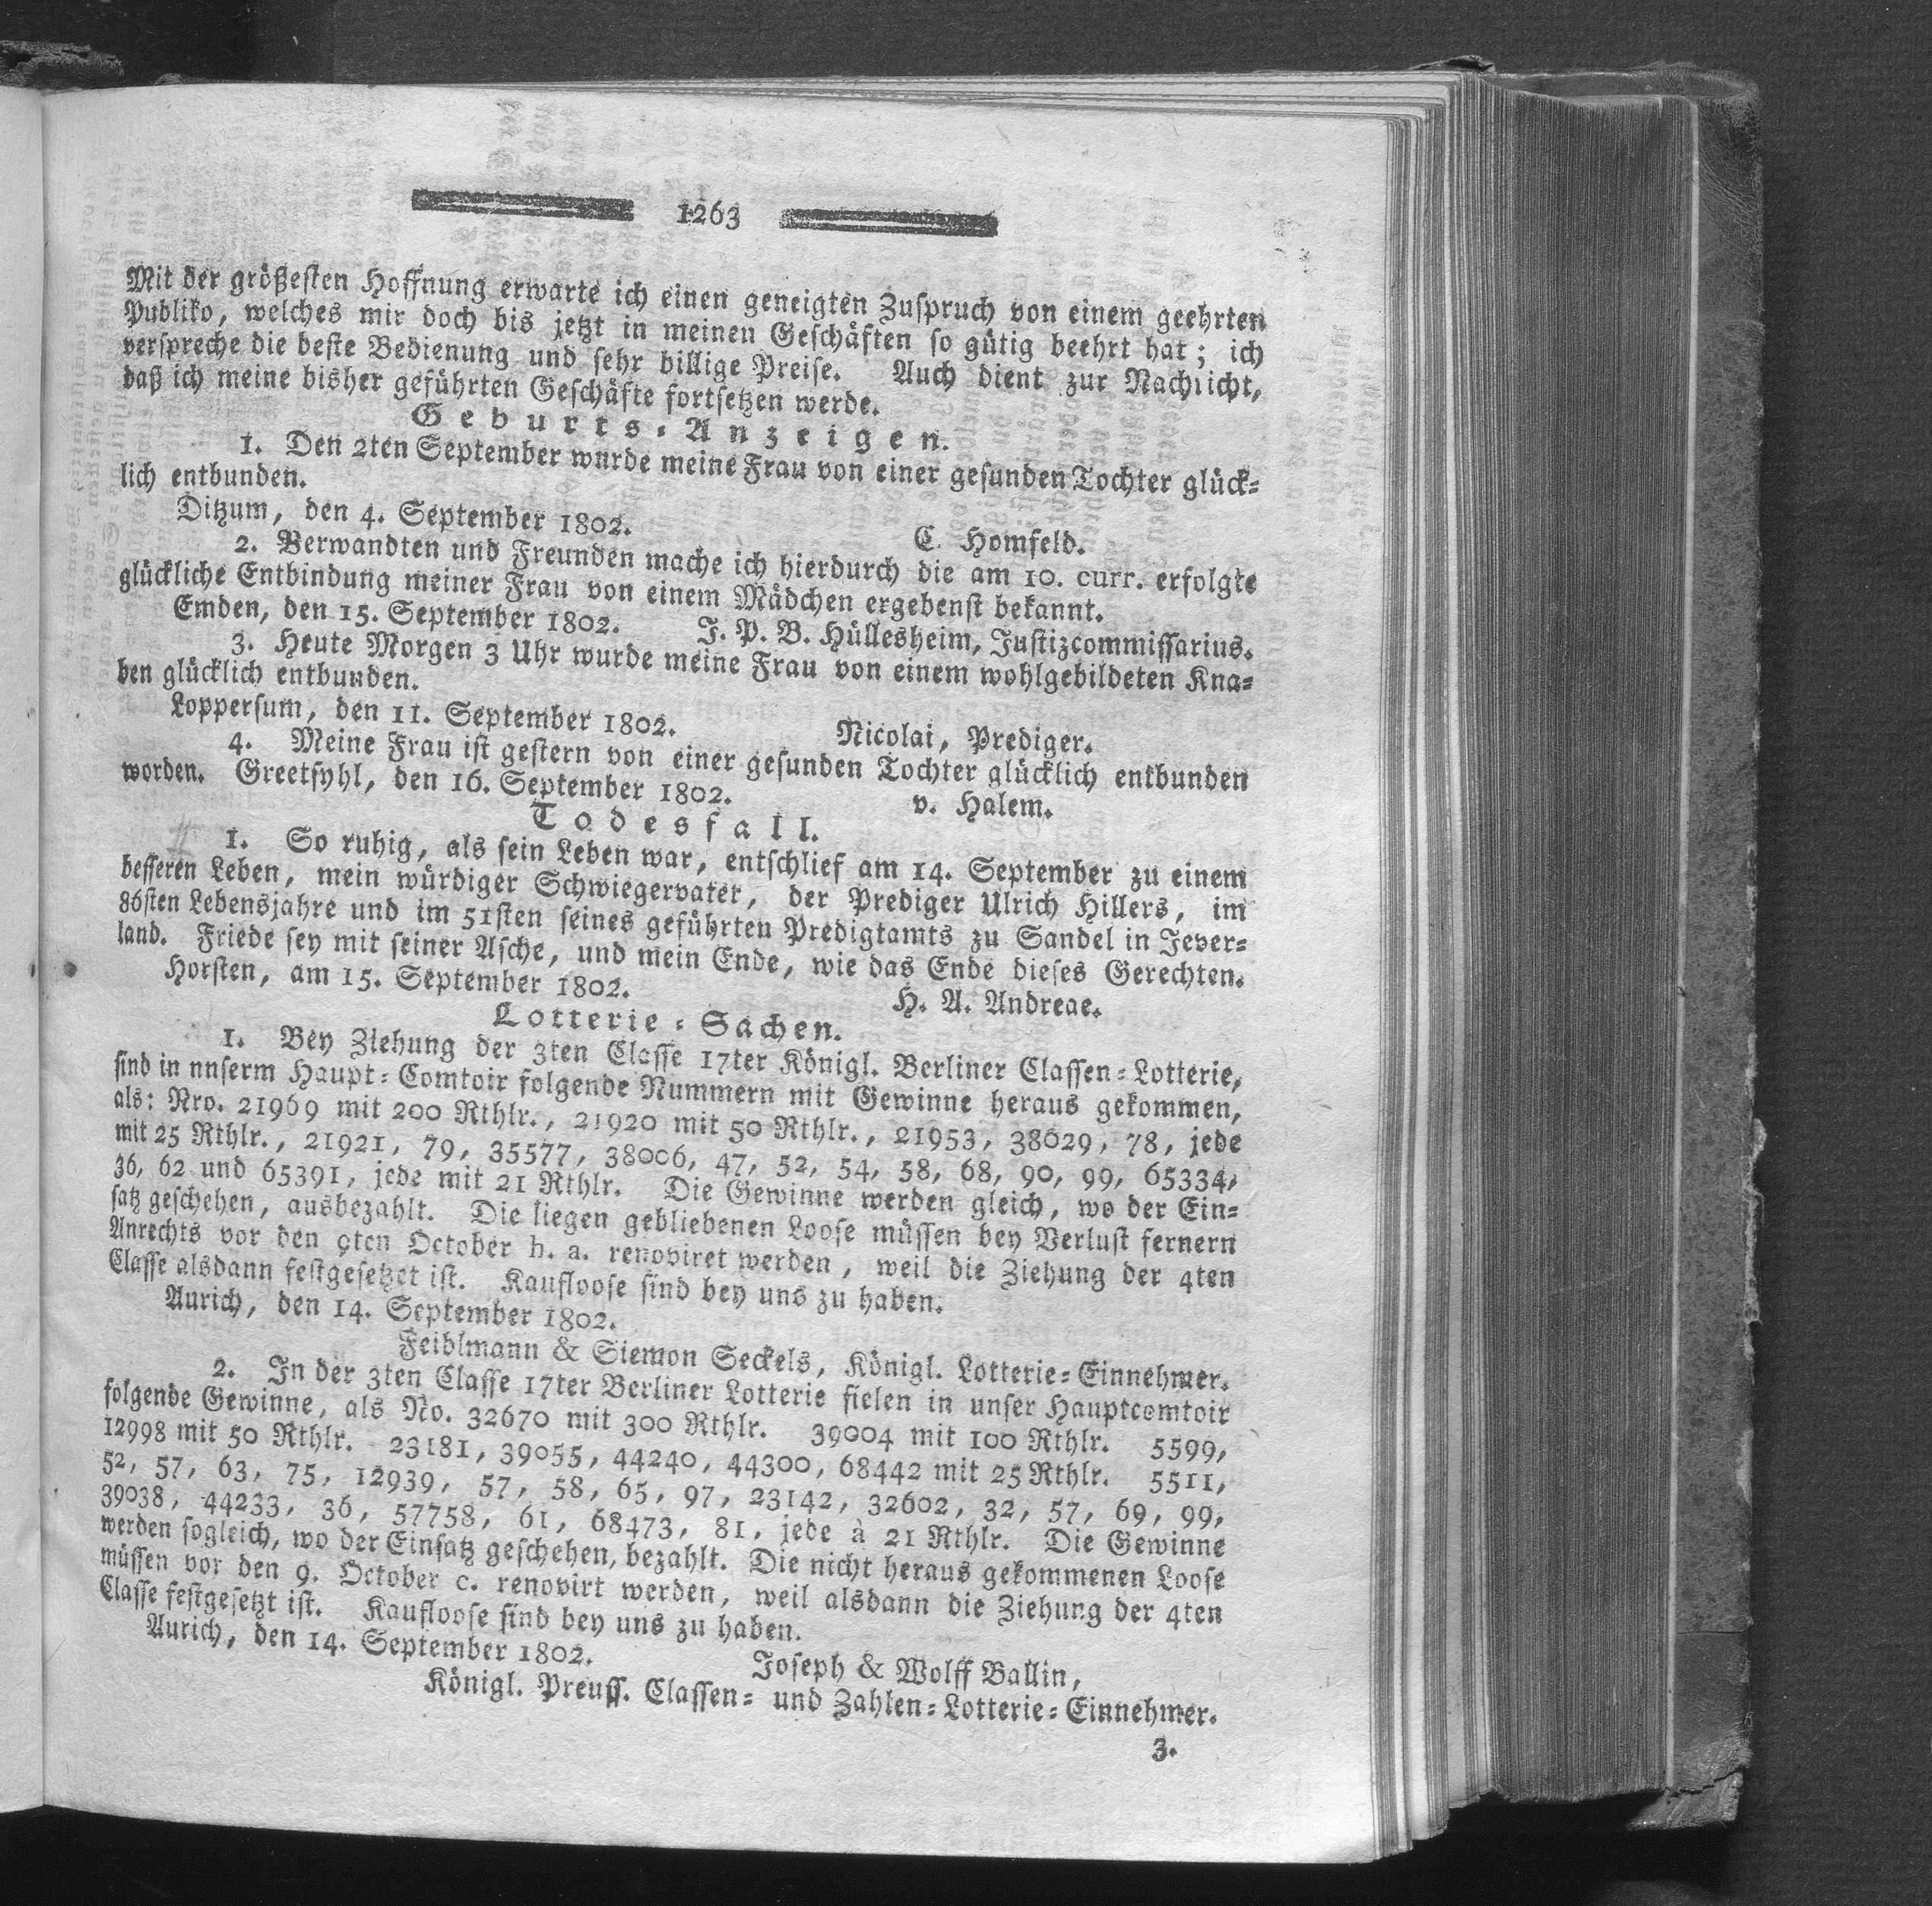 1263
Mit der größesten Hoffnung erwarte ich einen geneigten Zuspruch von einem geehrten
Publiko, welches mir doch bis jetzt in meinen Geschäften so gütig beehrt hat; ich
verspreche die beste Bedienung und sehr billige Preise. Auch dient zur Nachricht,
daß ich meine bisher geführten Geschäfte fortsetzen werde.
Geburts-Anzeigen.
1. Den 2ten September wurde meine Frau von einer gesunden Tochter glück-
lich entbunden.
Ditzum, den 4. September 1802. C. Homfeld.
2. Verwandten und Freunden mache ich hierdurch die am 10. curr. erfolgte
glückliche Entbindung meiner Frau von einem Mädchen ergebenst bekannt.
Emden, den 15. September 1802. J. P. B. Hüllesheim, Justizcommissarius.
3. Heute Morgen 3 Uhr wurde meine Frau von einem wohlgebildeten Kna-
ben glücklich entbunden.
Loppersum, den 11. September 1802. Nicolai, Prediger.
4. Meine Frau ist gestern von einer gesunden Tochter glücklich entbunden
worden. Greetsyhl, den 16. September 1802. v. Halem.
Todesfall.
1. So ruhig, als sein Leben war, entschlief am 14. September zu einem
besseren Leben, mein würdiger Schwiegervater, der Prediger Ulrich Hillers, im
86sten Lebensjahre und im 51sten seines geführten Predigtamts zu Sandel in Jever-
land. Friede sey mit seiner Asche, und mein Ende, wie das Ende dieses Gerechten.
Horsten, am 15. September 1802. H. A. Andreae.
Lotterie-Sachen.
1. Bey Ziehung der 3ten Classe 17ter Königl. Berliner Classen-Lotterie,
sind in nnserm Haupt-Comtoir folgende Nummern mit Gewinne heraus gekommen,
als: Nro. 21969 mit 200 Rthlr., 21920 mit 50 Rthlr., 21953, 38029, 78, jede
mit 25 Rthlr., 21921, 79, 35577, 38006, 47, 52, 54, 58, 68, 90, 99, 65334,
36, 62 und 65391, jede mit 21 Rthlr. Die Gewinne werden gleich, wo der Ein-
satz geschehen, ausbezahlt. Die liegen gebliebenen Loose müssen bey Verlust fernern
Anrechts vor den 9ten October h. a. renoviret werden, weil die Ziehung der 4ten
Classe alsdann festgesetzet ist. Kaufloose sind bey uns zu haben.
Aurich, den 14. September 1802.
Feiblmann & Siemon Seckels, Königl. Lotterie-Einnehmer.
2. In der 3ten Classe 17ter Berliner Lotterie fielen in unser Hauptcomtoir
folgende Gewinne, als No. 32670 mit 300 Rthlr. 39004 mit 100 Rthlr. 5599,
12998 mit 50 Rthlr. 23181, 39055, 44240, 44300, 68442 mit 25 Rthlr. 5511,
52, 57, 63, 75, 12939, 57, 58, 65, 97, 23142, 32602, 32, 57, 69, 99,
39038, 44233, 36, 57758, 61, 68473, 81, jede à 21 Rthlr. Die Gewinne
werden sogleich, wo der Einsatz geschehen, bezahlt. Die nicht heraus gekommenen Loose
müssen vor den 9. October c. renovirt werden, weil alsdann die Ziehung der 4ten
Classe festgesetzt ist. Kaufloose sind bey uns zu haben.
Aurich, den 14. September 1802. Joseph & Wolff Ballin,
Königl. Preuss. Classen- und Zahlen-Lotterie-Einnehmer.
3.